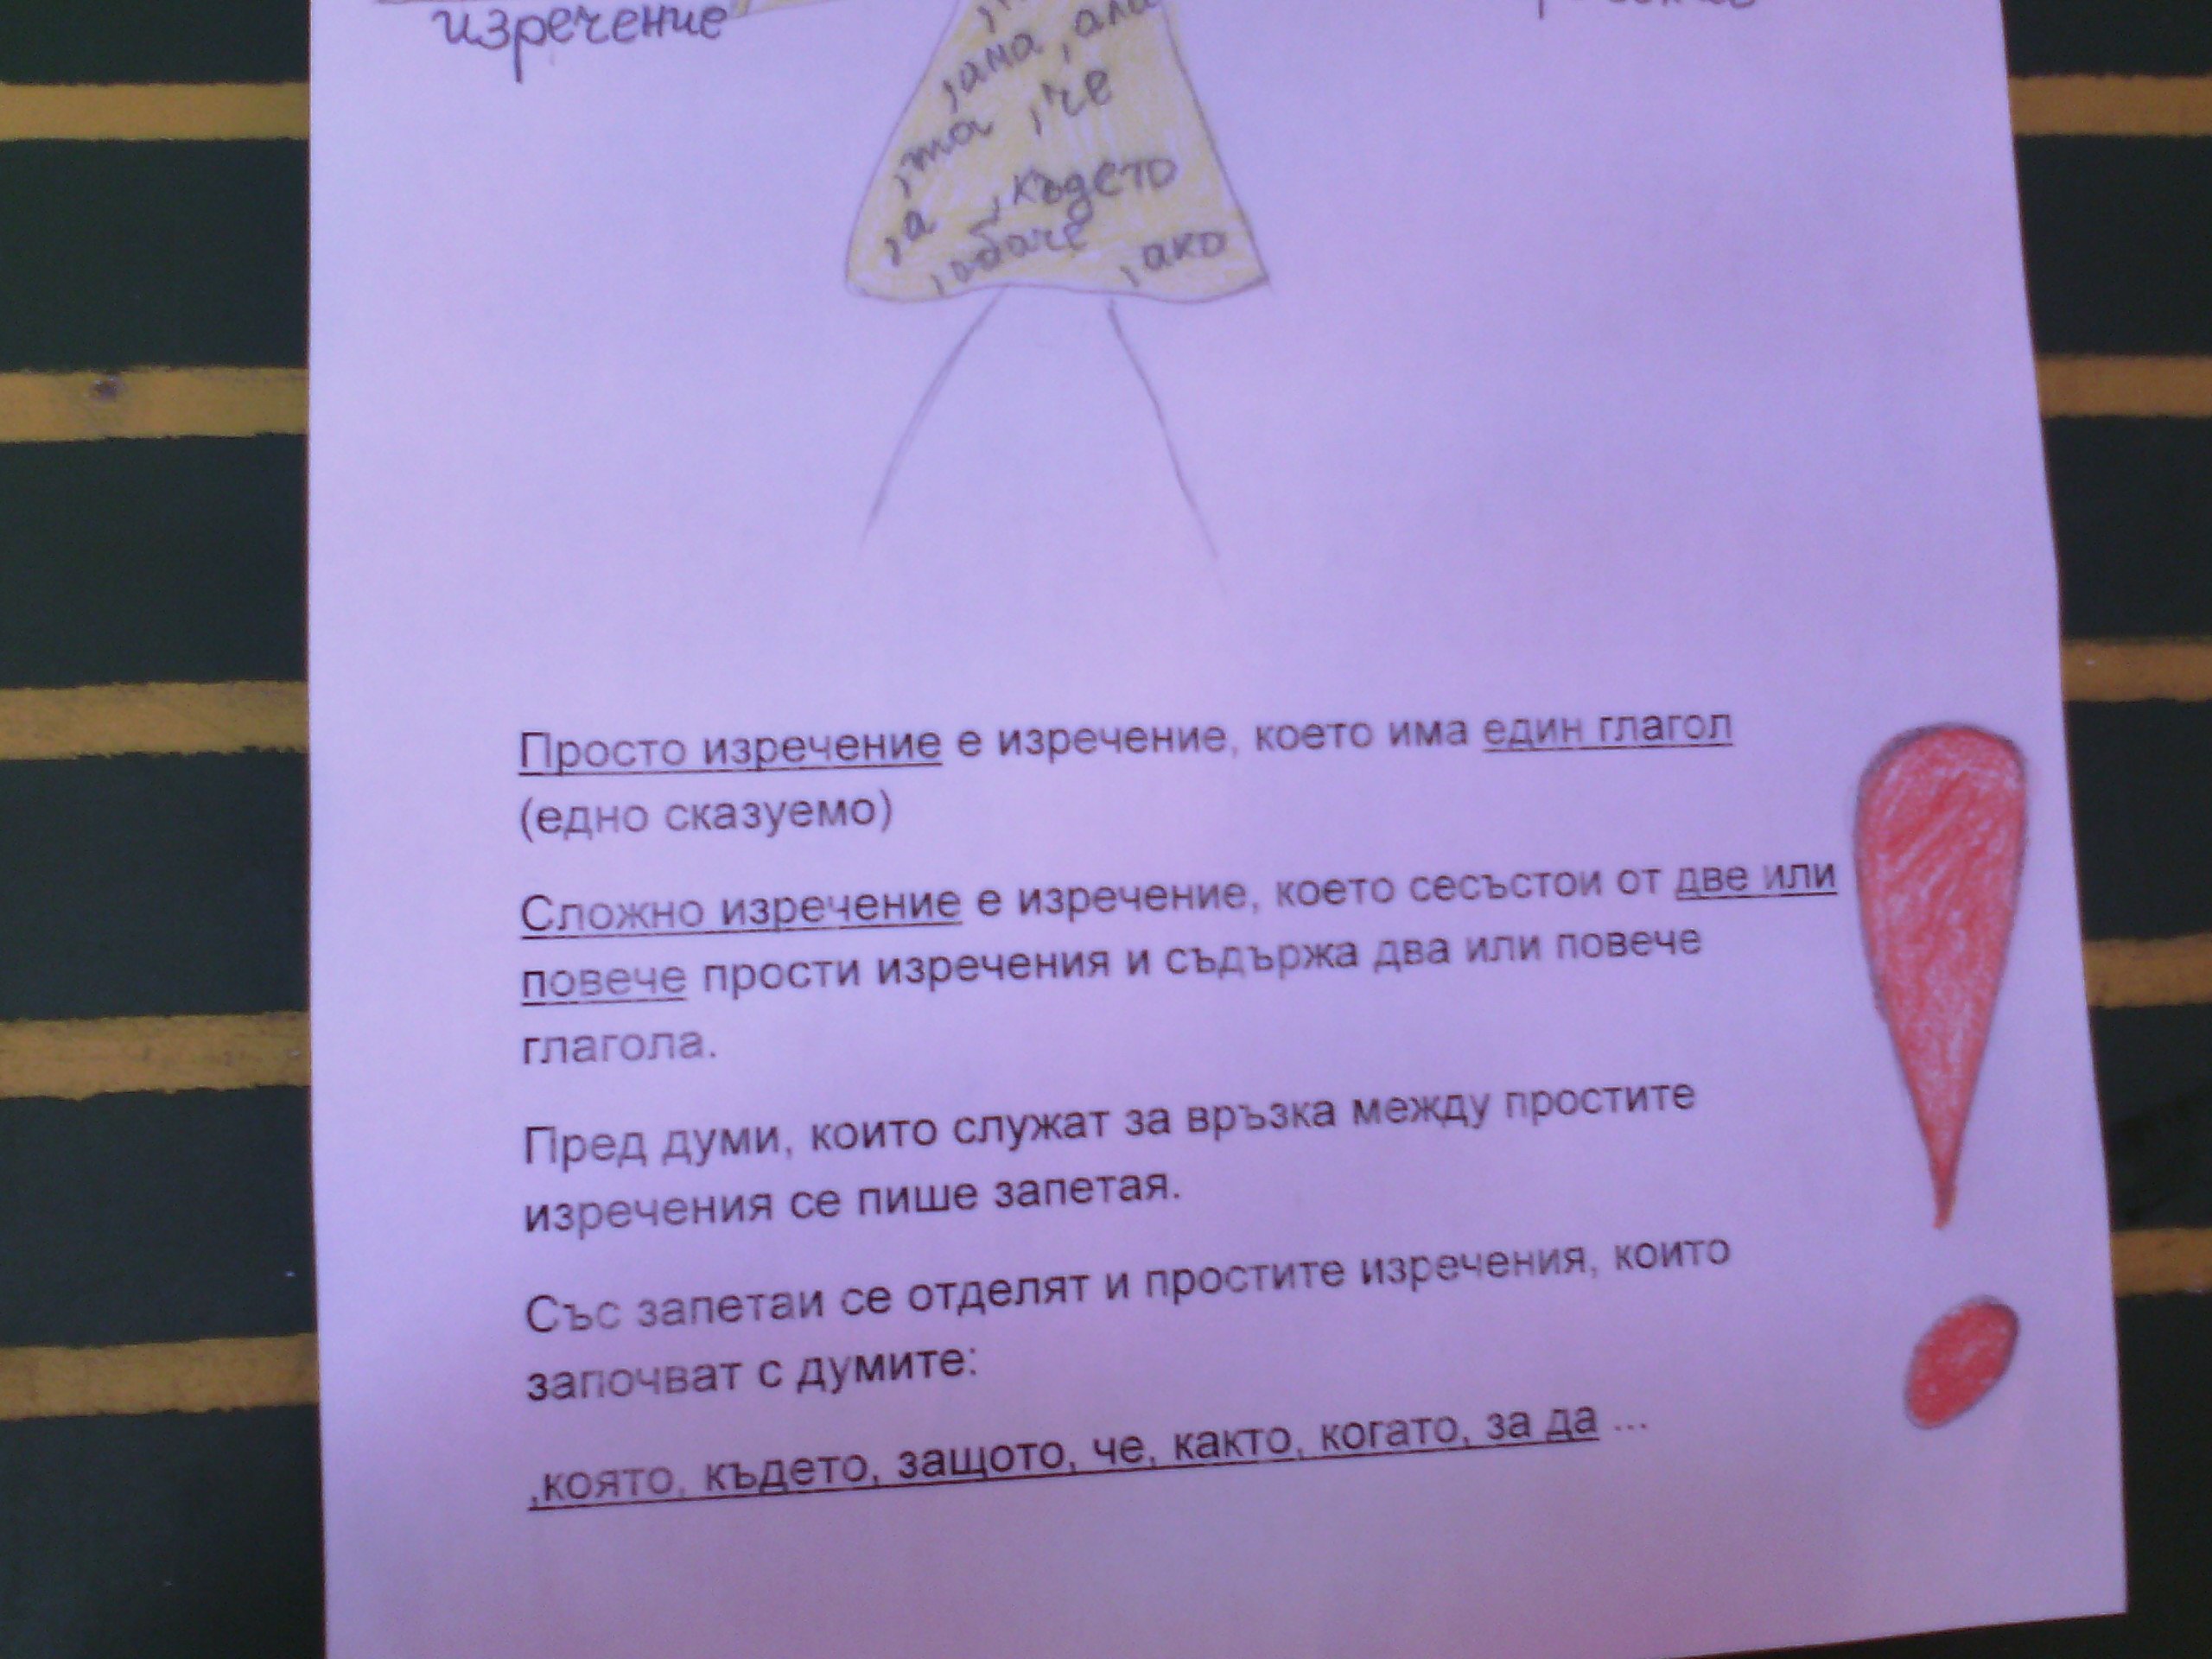 изречение
,ама ,ала
,та ,че
,а ,където
,обаче ,ако
Просто изречение е изречение, което има един глагол
(едно сказуемо)
Сложно изречение е изречение, което сесъстои от две или
повече прости изречения и съдържа два или повече
глагола.
Пред думи, които служат за връзка между простите
изречения се пише запетая.
Със запетаи се отделят и простите изречения, които
започват с думите:
,която, където, защото, че, както, когато, за да ...